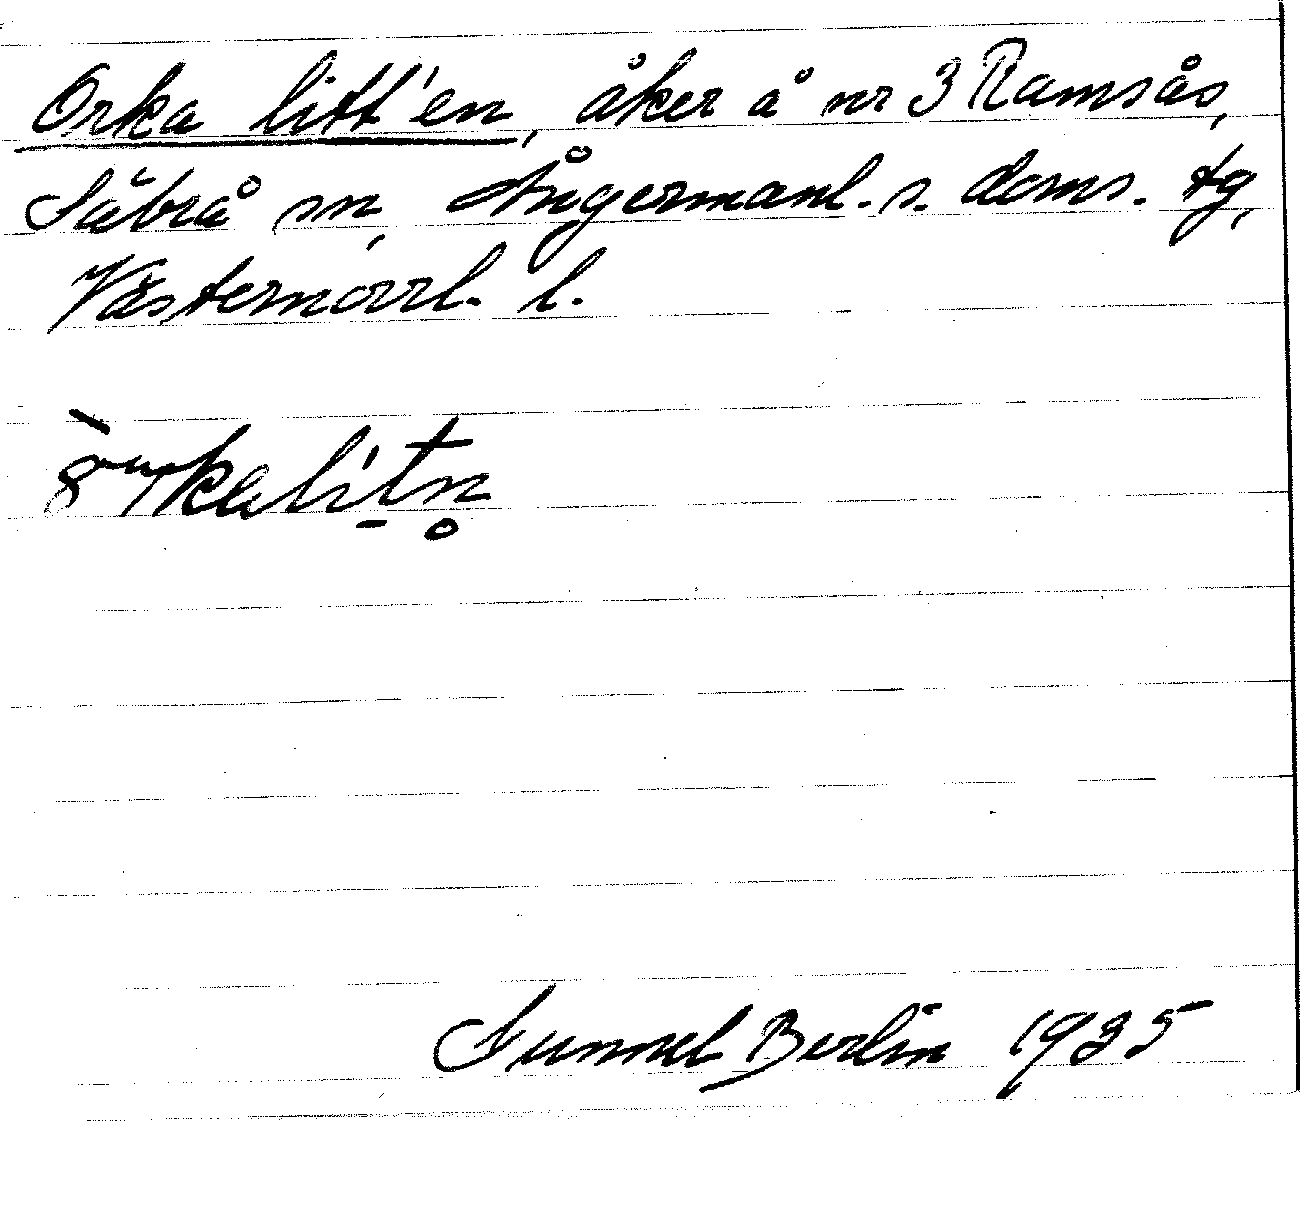 Orka litt'en, åker å nr 3 Ramsås,
Säbrå sn, Ångermanl. s. doms. tg,
Västernorrl. l.
Gunnel Berlin 1935